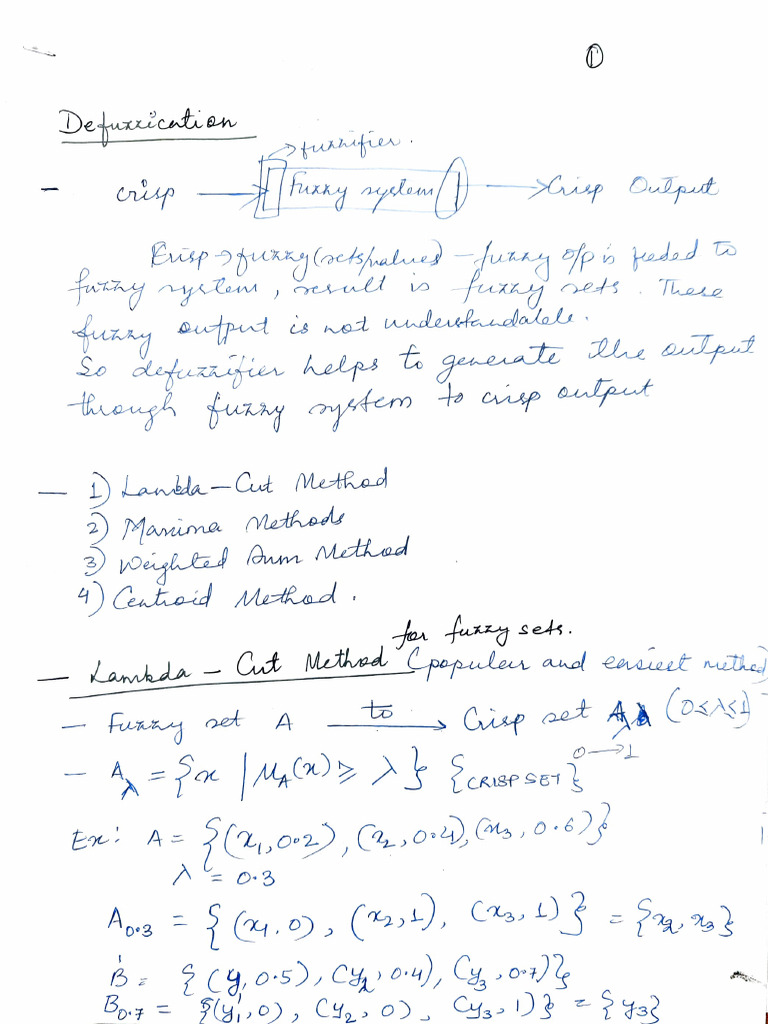 ①
Defuzzication
→ fuzzifier.
— crisp → Fuzzy system → Crisp Output
Crisp → fuzzy (sets/values) – fuzzy o/p is feeded to
fuzzy system, result is fuzzy sets. These
fuzzy output is not understandable.
So defuzzifier helps to generate the output
through fuzzy system to crisp output
— 1) Lambda – Cut Method
2) Maxima Methods
3) Weighted Sum Method
4) Centroid Method.
for fuzzy sets.
— Lambda – Cut Method (popular and easiest method)
— Fuzzy set A to → Crisp set Aλ (0≤λ≤1)
0 → 1
— Aλ = {x | μA(x) ≥ λ} {CRISP SET}
Ex: A = {(x1, 0.2), (x2, 0.4), (x3, 0.6)}
λ = 0.3
A0.3 = {(x1, 0), (x2, 1), (x3, 1)} = {x2, x3}
B = {(y1, 0.5), (y2, 0.4), (y3, 0.7)}
B0.7 = {(y1, 0), (y2, 0), (y3, 1)} = {y3}